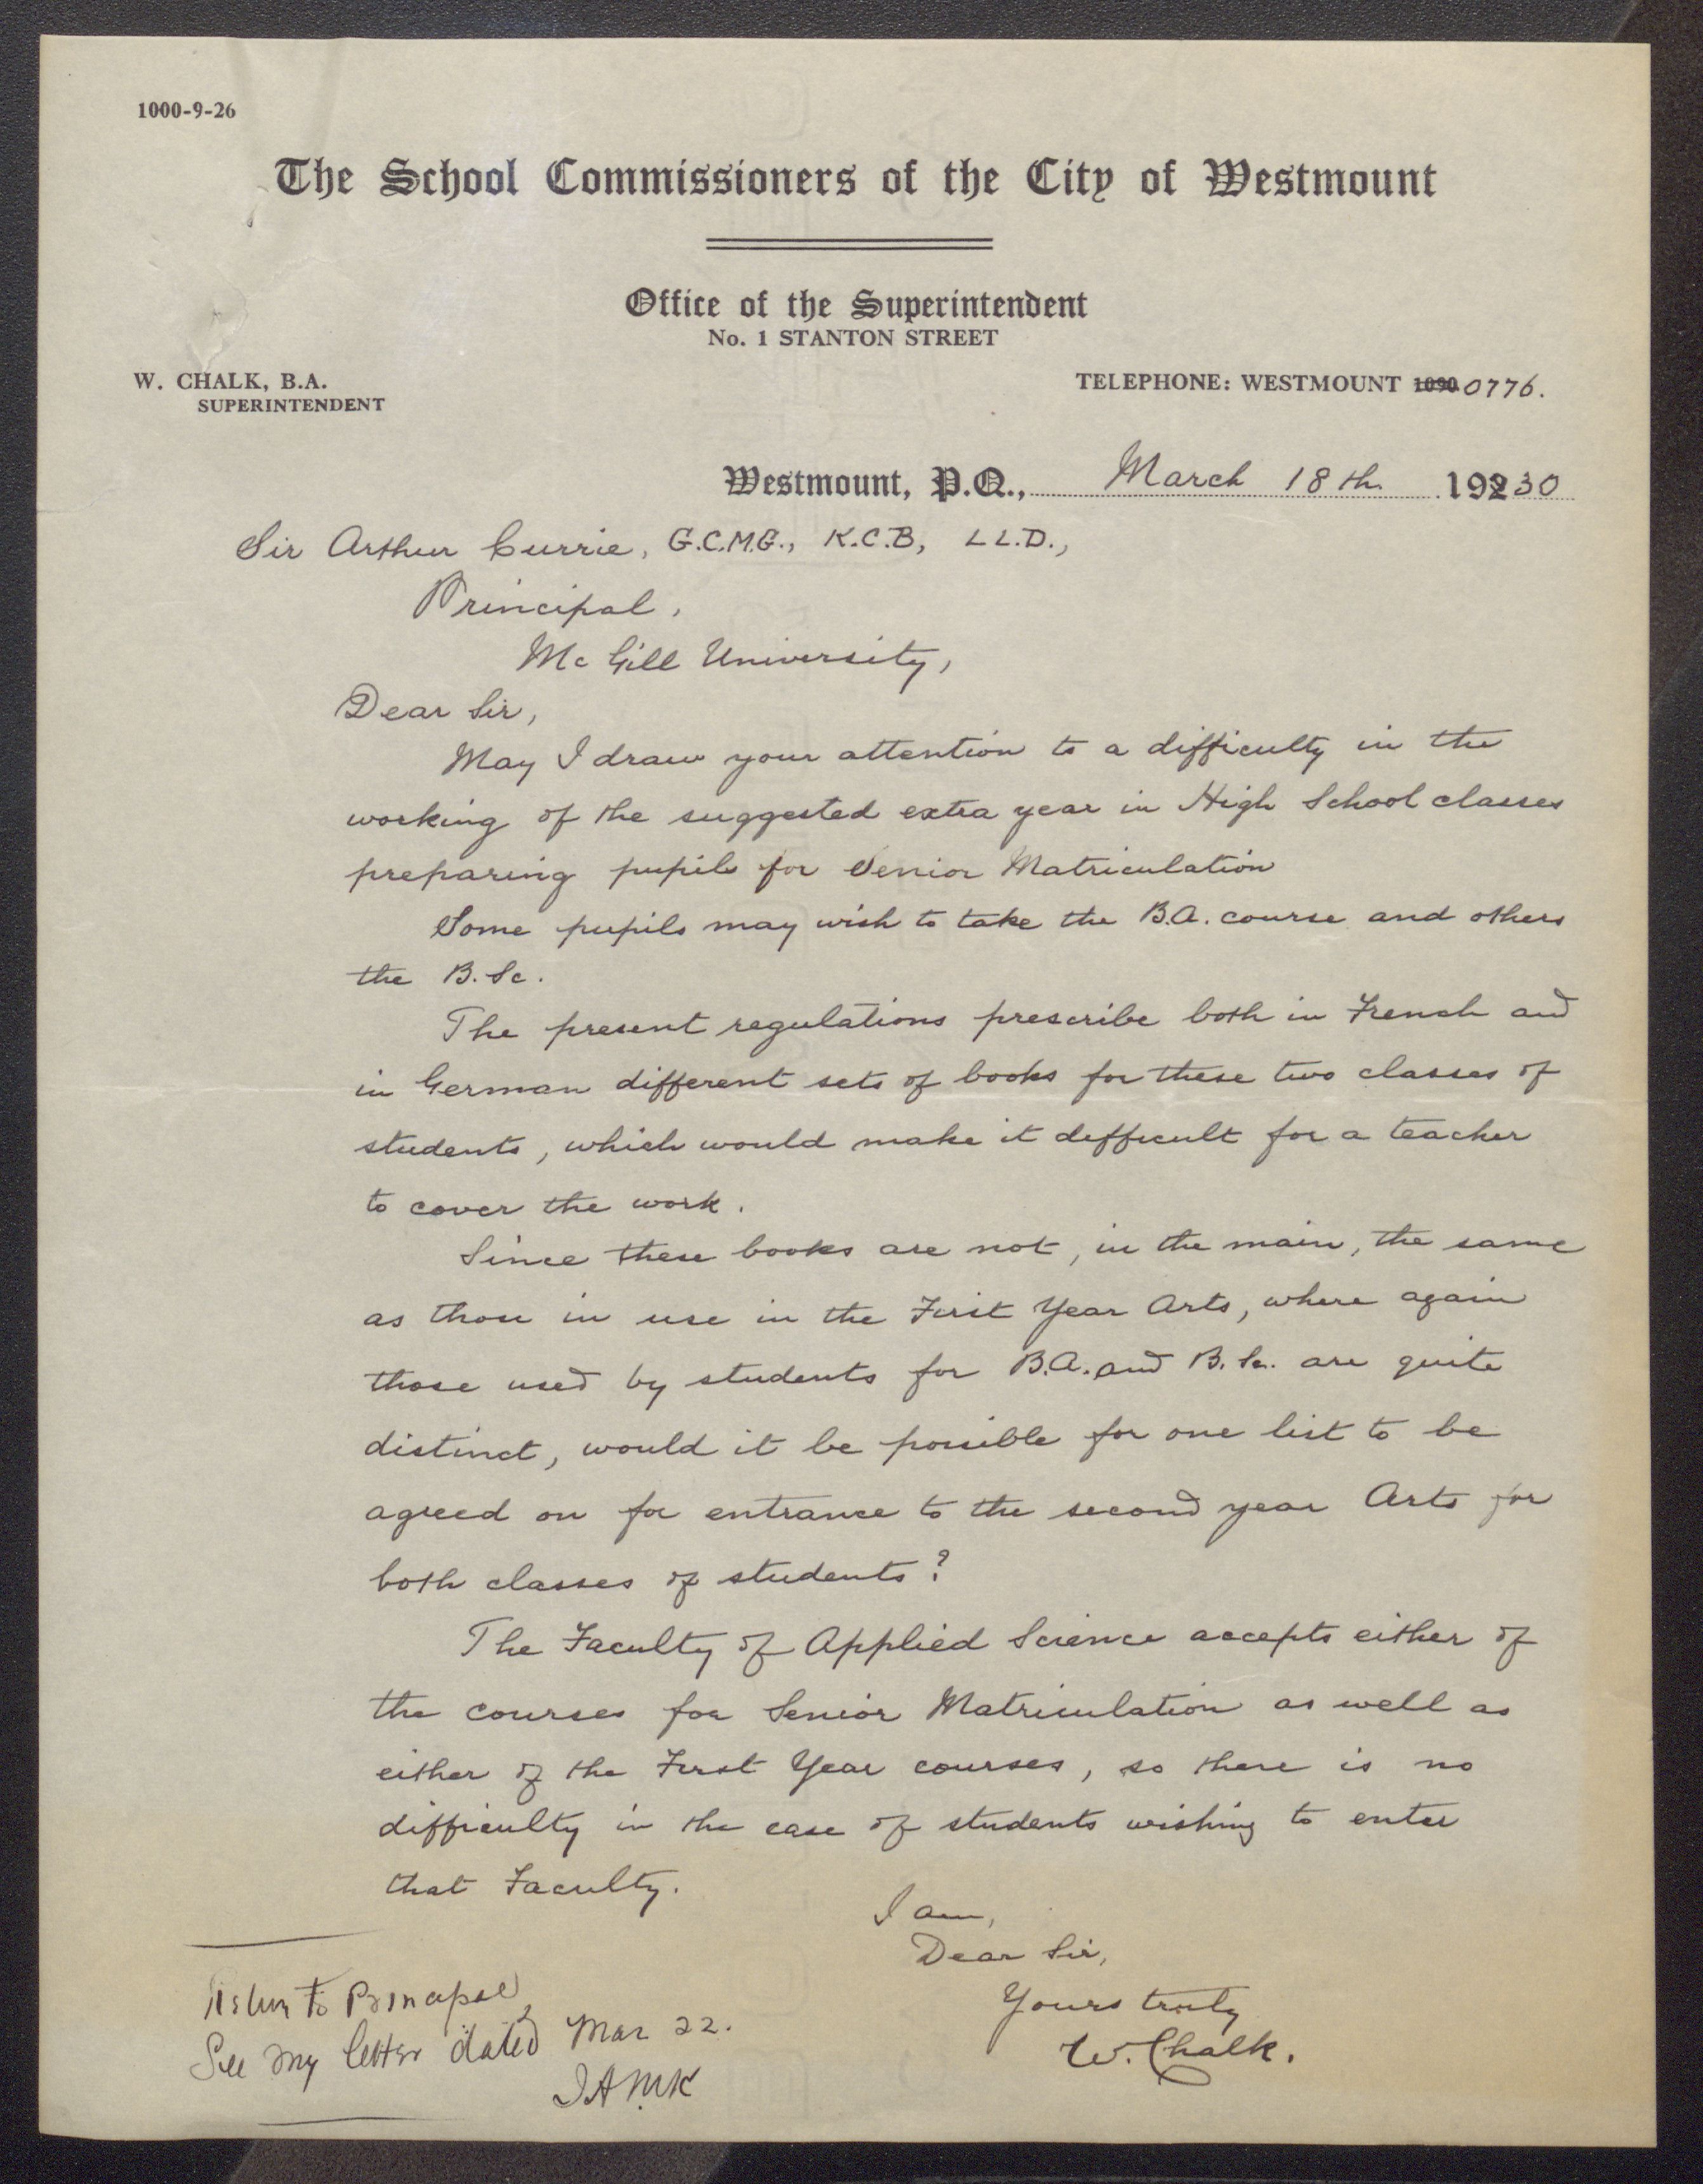 1000-9-26
The School Commissioners of the City of Westmount
Office of the Superintendent
No. 1 STANTON STREET
W. CHALK, B.A.
SUPERINTENDENT
TELEPHONE: WESTMOUNT 1090 0776.
Westmount, P.Q., March 18th. 19230
Sir Arthur Currie, G.C.M.G., K.C.B, LL.D.,
Principal,
McGill University,
Dear Sir,
May I draw your attention to a difficulty in the
working of the suggested extra year in High School classes
preparing pupils for Senior Matriculation
Some pupils may wish to take the B.A. course and others
the B.Sc.
The present regulations prescribe both in French and
in German different sets of books for these two classes of
students, which would make it difficult for a teacher
to cover the work.
Since these books are not, in the main, the same
as those in use in the First Year Arts, where again
those used by students for B.A. and B.Sc. are quite
distinct, would it be possible for one list to be
agreed on for entrance to the second year Arts for
both classes of students?
The Faculty of Applied Science accepts either of
the courses for Senior Matriculation as well as
either of the First Year courses, so there is no
difficulty in the case of students wishing to enter
that Faculty.
I am,
Dear Sir,
Yours truly
W. Chalk.
to Principal
See my letter dated Mar 22.